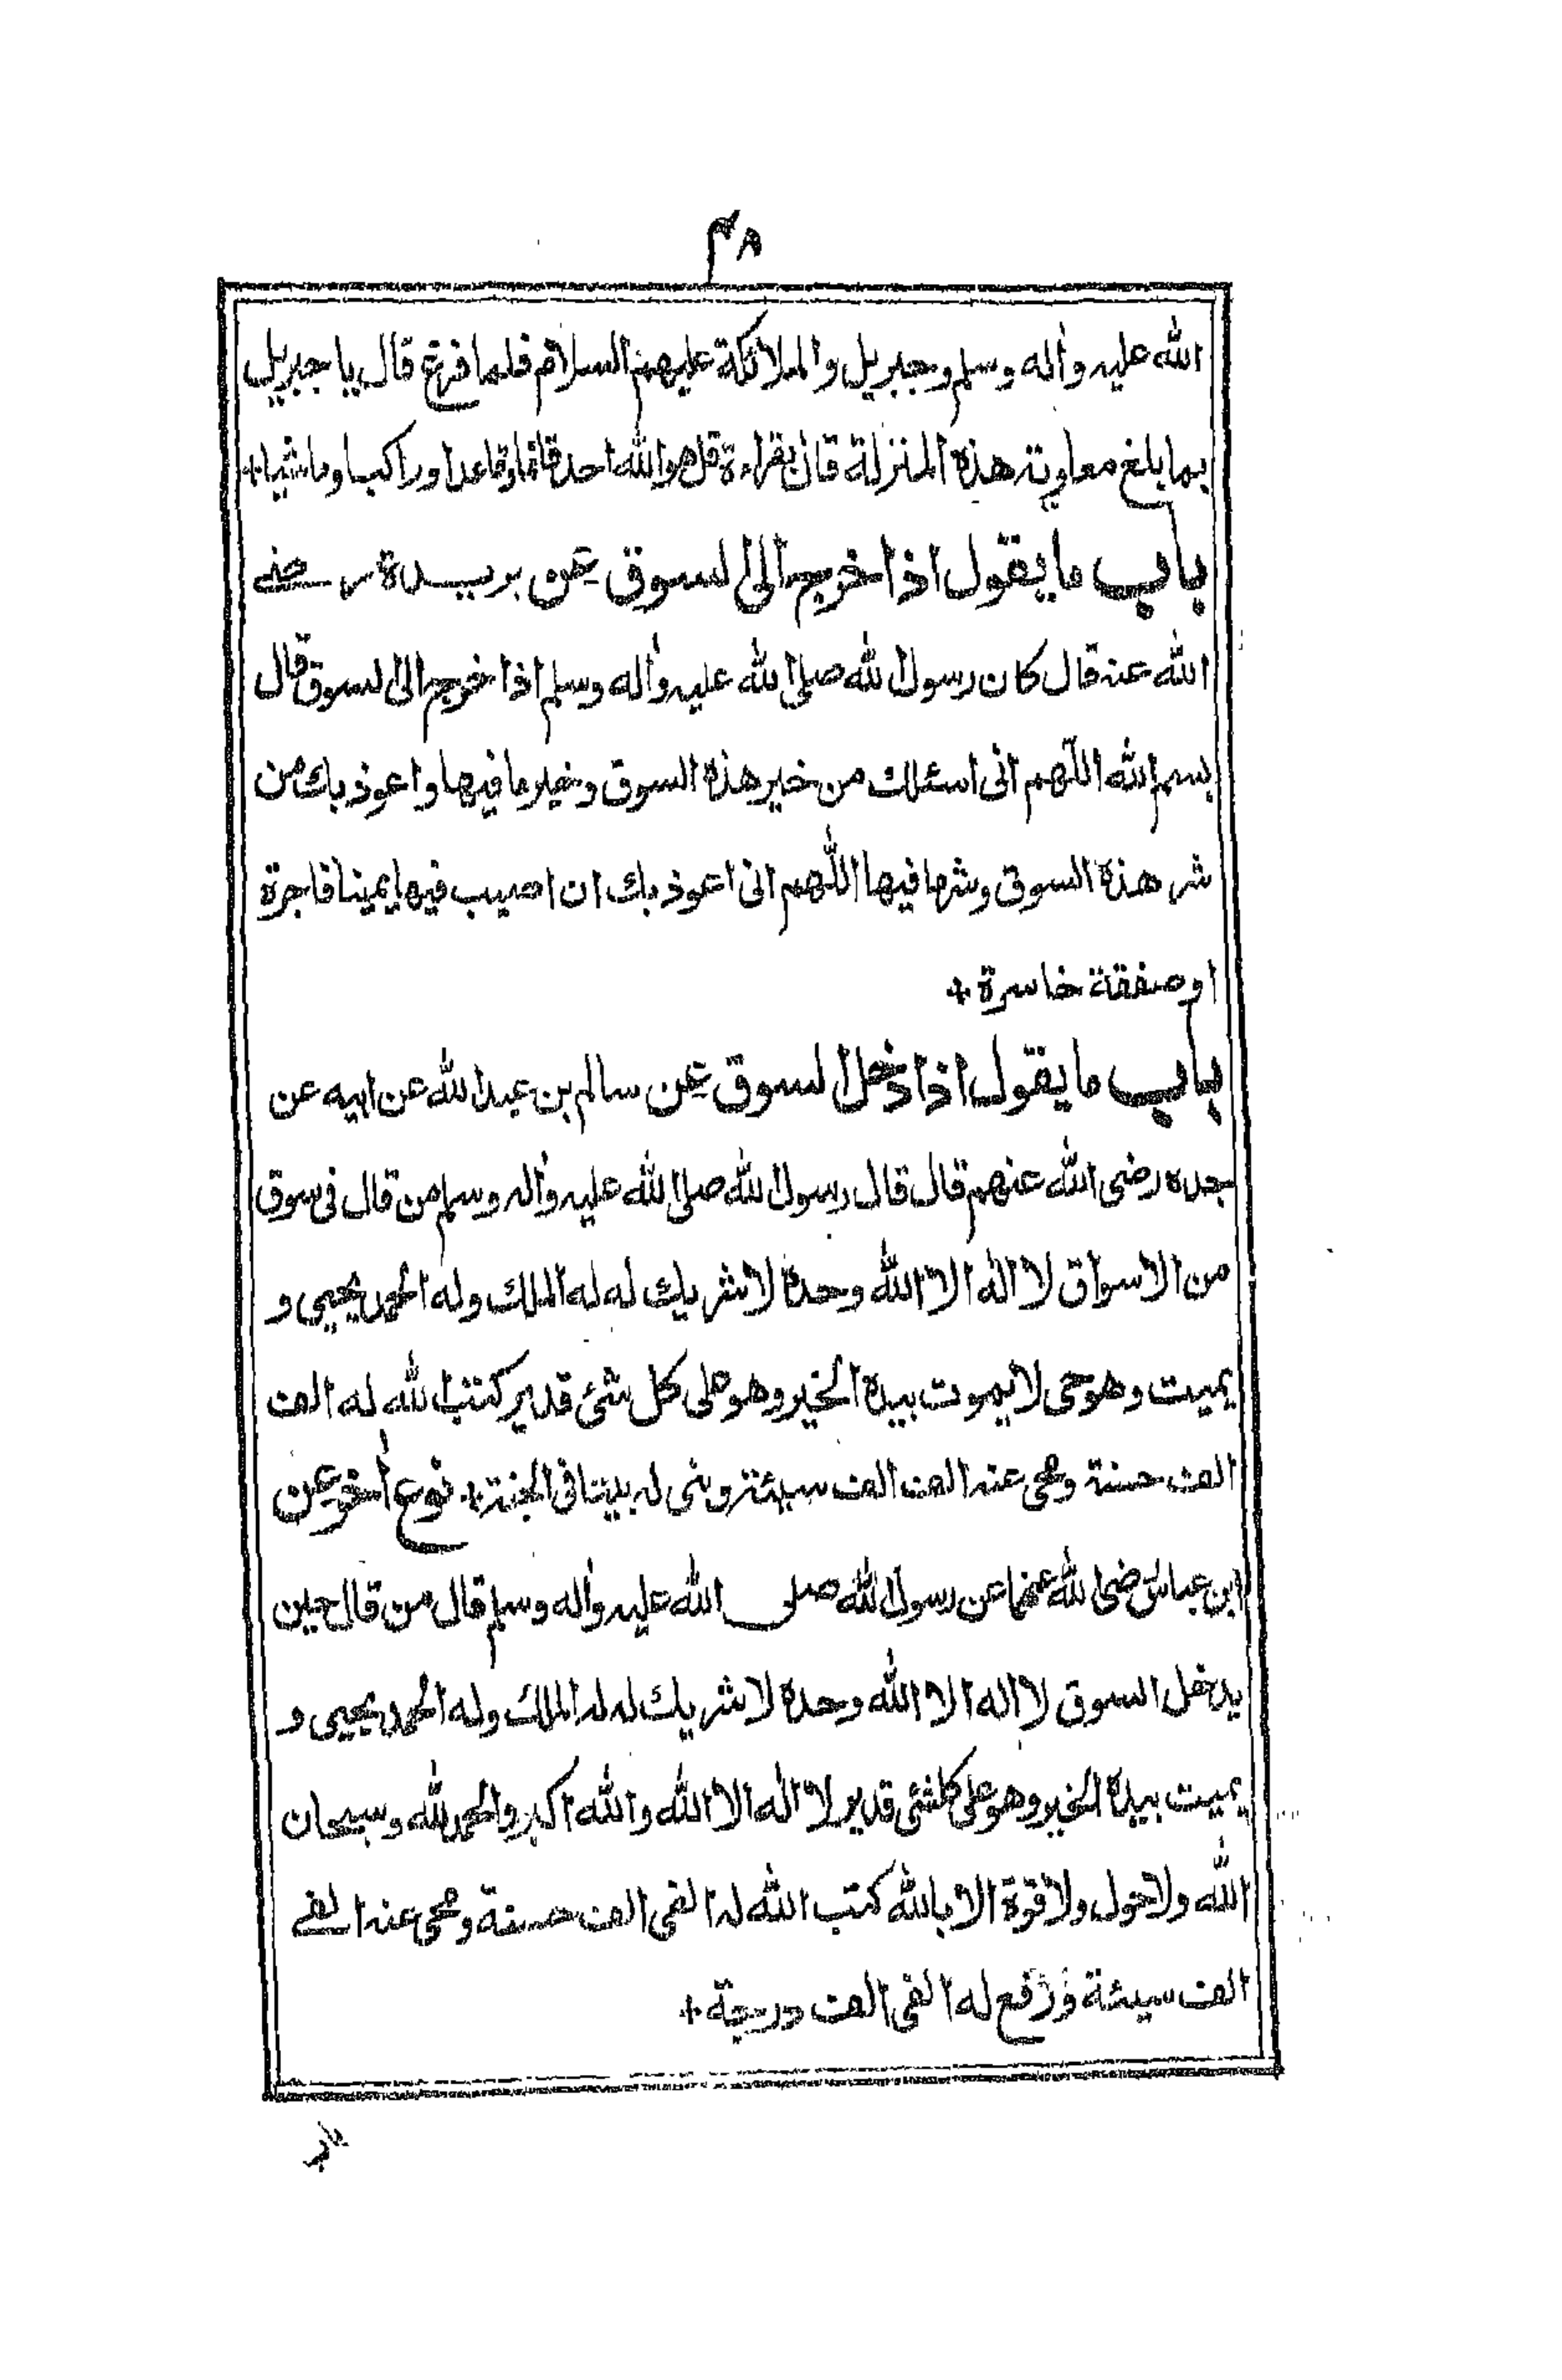 ۴۸
الله عليه واٰله وسلم وجبريل والملائكة عليهم السلام فلما فرغ قال يا جبريل
بما بلغ معاوية هذه المنزلة قال بقراءة قل هو الله احد قائما وقاعدا وراكبا وماشيا +
باب ما يقول اذا خرج الى السوق عن بريدة رضى
الله عنه قال كان رسول الله صلى الله عليه واٰله وسلم اذا خرج الى السوق قال
بسم الله اللّهم انى اسئلك من خير هذه السوق وخير ما فيها واعوذ بك من
شر هذه السوق وشر ما فيها اللّهم انى اعوذ بك ان اصيب فيها يمينا فاجرة
او صفقة خاسرة +
باب ما يقول اذا دخل السوق عن سالم بن عبد الله عن ابيه عن
جده رضى الله عنهم قال قال رسول الله صلى الله عليه واٰله وسلم من قال فى سوق
من الاسواق لا اله الا الله وحده لا شريك له له الملك وله الحمد يحيى و
يميت وهو حى لا يموت بيده الخير وهو على كل شئ قدير كتب الله له الف
الف حسنة ومحى عنه الف الف سيئة وبنى له بيتا فى الجنة + نوع اٰخر عن
ابن عباس رضى الله عنهما عن رسول الله صلى الله عليه واٰله وسلم قال من قال حين
يدخل السوق لا اله الا الله وحده لا شريك له له الملك وله الحمد يحيى و
يميت بيده الخير وهو على كلشئ قدير لا اله الا الله والله اكبر والحمد لله وسبحان
الله ولا حول ولا قوة الا بالله كتب الله له الفى الف حسنة ومحى عنه الفى
الف سيئة ورفع له الفى الف درجة +